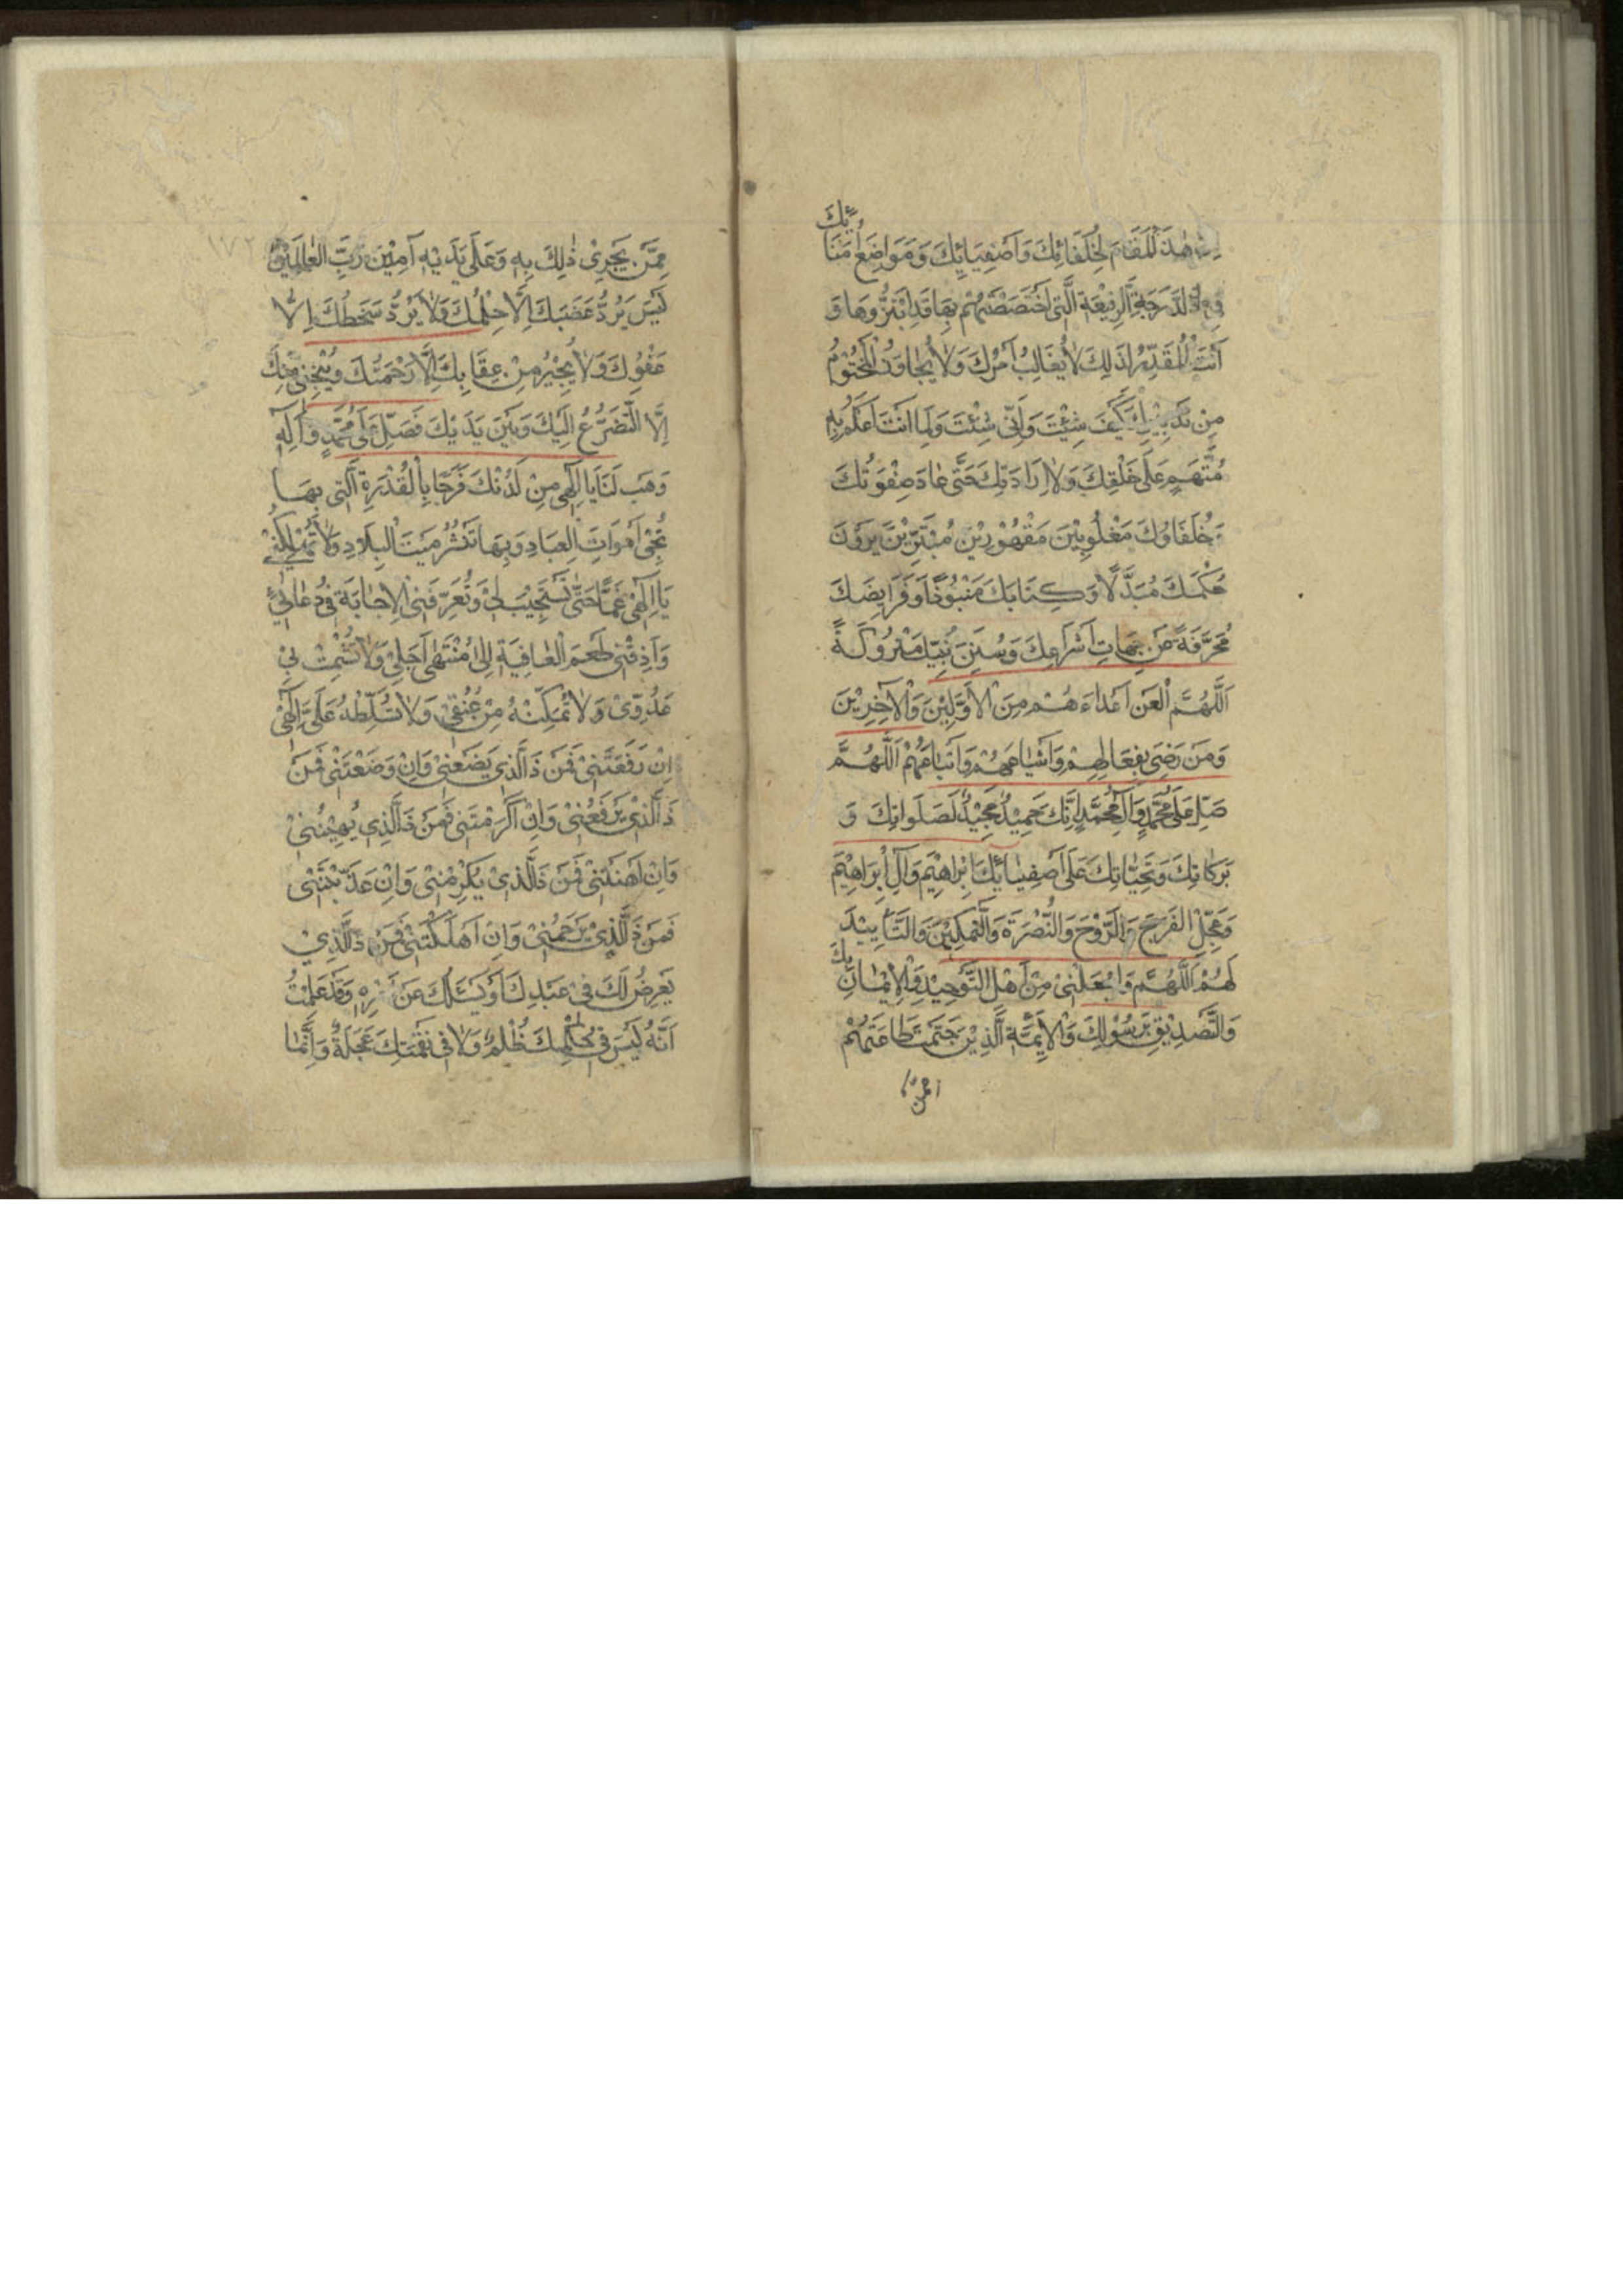 هٰذَ الْمَقَامَ لِخُلَفَائِكَ وَاَصْفِيَائِكَ وَمَوَاضِعَ اُمَنَائِكَ
فِي الدَّرَجَةِ الرَّفِيْعَةِ الَّتِي اخْتَصَصْتَهُمْ بِهَا قَدِ ابْتَزُّوهَا وَ
اَنْتَ الْمُقَدِّرُ لِذٰلِكَ لَا يُغَالَبُ اَمْرُكَ وَلَا يُجَاوَزُ الْمَحْتُوْمُ
مِنْ تَدْبِيْرِكَ كَيْفَ شِئْتَ وَاَنّٰى شِئْتَ وَلِمَا اَنْتَ اَعْلَمُ بِهِ
مُتَّهَمٍ عَلٰى خَلْقِكَ وَلَا اِرَادَتِكَ حَتّٰى عَادَ صِفْوَتُكَ
وَخُلَفَاؤُكَ مَغْلُوبِيْنَ مَقْهُوْرِيْنَ مُبْتَزِّيْنَ يَرَوْنَ
حُكْمَكَ مُبَدَّلًا وَكِتَابَكَ مَنْبُوْذًا وَفَرَايِضَكَ
مُحَرَّفَةً عَنْ جِهَاتِ اَشْرَاعِكَ وَسُنَنَ نَبِيِّكَ مَتْرُوكَةً
اَللّٰهُمَّ الْعَنْ اَعْدَاءَهُمْ مِنَ الْاَوَّلِيْنَ وَالْاٰخِرِيْنَ
وَمَنْ رَضِيَ بِفِعَالِهِمْ وَاَشْيَاعَهُمْ وَاَتْبَاعَهُمْ اَللّٰهُمَّ
صَلِّ عَلٰى مُحَمَّدٍ وَاٰلِ مُحَمَّدٍ اِنَّكَ حَمِيْدٌ مَجِيْدٌ كَصَلَوَاتِكَ وَ
بَرَكَاتِكَ وَتَحِيَّاتِكَ عَلٰى اَصْفِيَائِكَ اِبْرَاهِيْمَ وَاٰلِ اِبْرَاهِيْمَ
وَعَجِّلِ الْفَرَجَ وَالرَّوْحَ وَالنُّصْرَةَ وَالتَّمْكِيْنَ وَالتَّأْيِيْدَ
لَهُمْ اَللّٰهُمَّ وَاجْعَلْنِيْ مِنْ اَهْلِ التَّوْحِيْدِ وَالْاِيْمَانِ بِكَ
وَالتَّصْدِيْقِ بِرَسُوْلِكَ وَالْاَئِمَّةِ الَّذِيْنَ حَتَمْتَ طَاعَتَهُمْ
١٧٢
مِمَّنْ يَجْرِيْ ذٰلِكَ بِهِ وَعَلٰى يَدَيْهِ اٰمِيْنَ رَبَّ الْعَالَمِيْنَ
لَيْسَ يَرُدُّ غَضَبَكَ اِلَّا حِلْمُكَ وَلَا يَرُدُّ سَخَطَكَ اِلَّا
عَفْوُكَ وَلَا يُجِيْرُ مِنْ عِقَابِكَ اِلَّا رَحْمَتُكَ وَيُنْجِنِي مِنْكَ
اِلَّا التَّضَرُّعُ اِلَيْكَ وَبَيْنَ يَدَيْكَ فَصَلِّ عَلٰى مُحَمَّدٍ وَاٰلِهِ
وَهَبْ لَنَا يَا اِلٰهِي مِنْ لَدُنْكَ فَرَجًا بِالْقُدْرَةِ الَّتِي بِهَا
تُحْيِيْ اَمْوَاتَ الْعِبَادِ وَبِهَا تَنْشُرُ مَيْتَ الْبِلَادِ وَلَا تُهْلِكْنِيْ
يَا اِلٰهِيْ غَمًّا حَتّٰى تَسْتَجِيْبَ لِيْ وَتُعَرِّفَنِي الْاِجَابَةَ فِيْ دُعَائِيْ
وَاَذِقْنِيْ طَعْمَ الْعَافِيَةِ اِلٰى مُنْتَهٰى اَجَلِيْ وَلَا تُشْمِتْ بِيْ
عَدُوِّيْ وَلَا تُمَكِّنْهُ مِنْ عُنُقِيْ وَلَا تُسَلِّطْهُ عَلَيَّ اِلٰهِيْ
اِنْ رَفَعْتَنِيْ فَمَنْ ذَا الَّذِي يَضَعُنِيْ وَاِنْ وَضَعْتَنِيْ فَمَنْ
ذَا الَّذِيْ يَرْفَعُنِيْ وَاِنْ اَكْرَمْتَنِي فَمَنْ ذَا الَّذِي يُهِيْنُنِيْ
وَاِنْ اَهَنْتَنِيْ فَمَنْ ذَا الَّذِيْ يُكْرِمُنِيْ وَاِنْ عَذَّبْتَنِيْ
فَمَنْ ذَا الَّذِيْ يَرْحَمُنِيْ وَاِنْ اَهْلَكْتَنِيْ فَمَنْ ذَا الَّذِيْ
يَعْرِضُ لَكَ فِيْ عَبْدِكَ اَوْ يَسْئَلُكَ عَنْ اَمْرِهِ وَقَدْ عَلِمْتُ
اَنَّهُ لَيْسَ فِيْ حُكْمِكَ ظُلْمٌ وَلَا فِي نَقْمَتِكَ عَجَلَةٌ وَاِنَّمَا